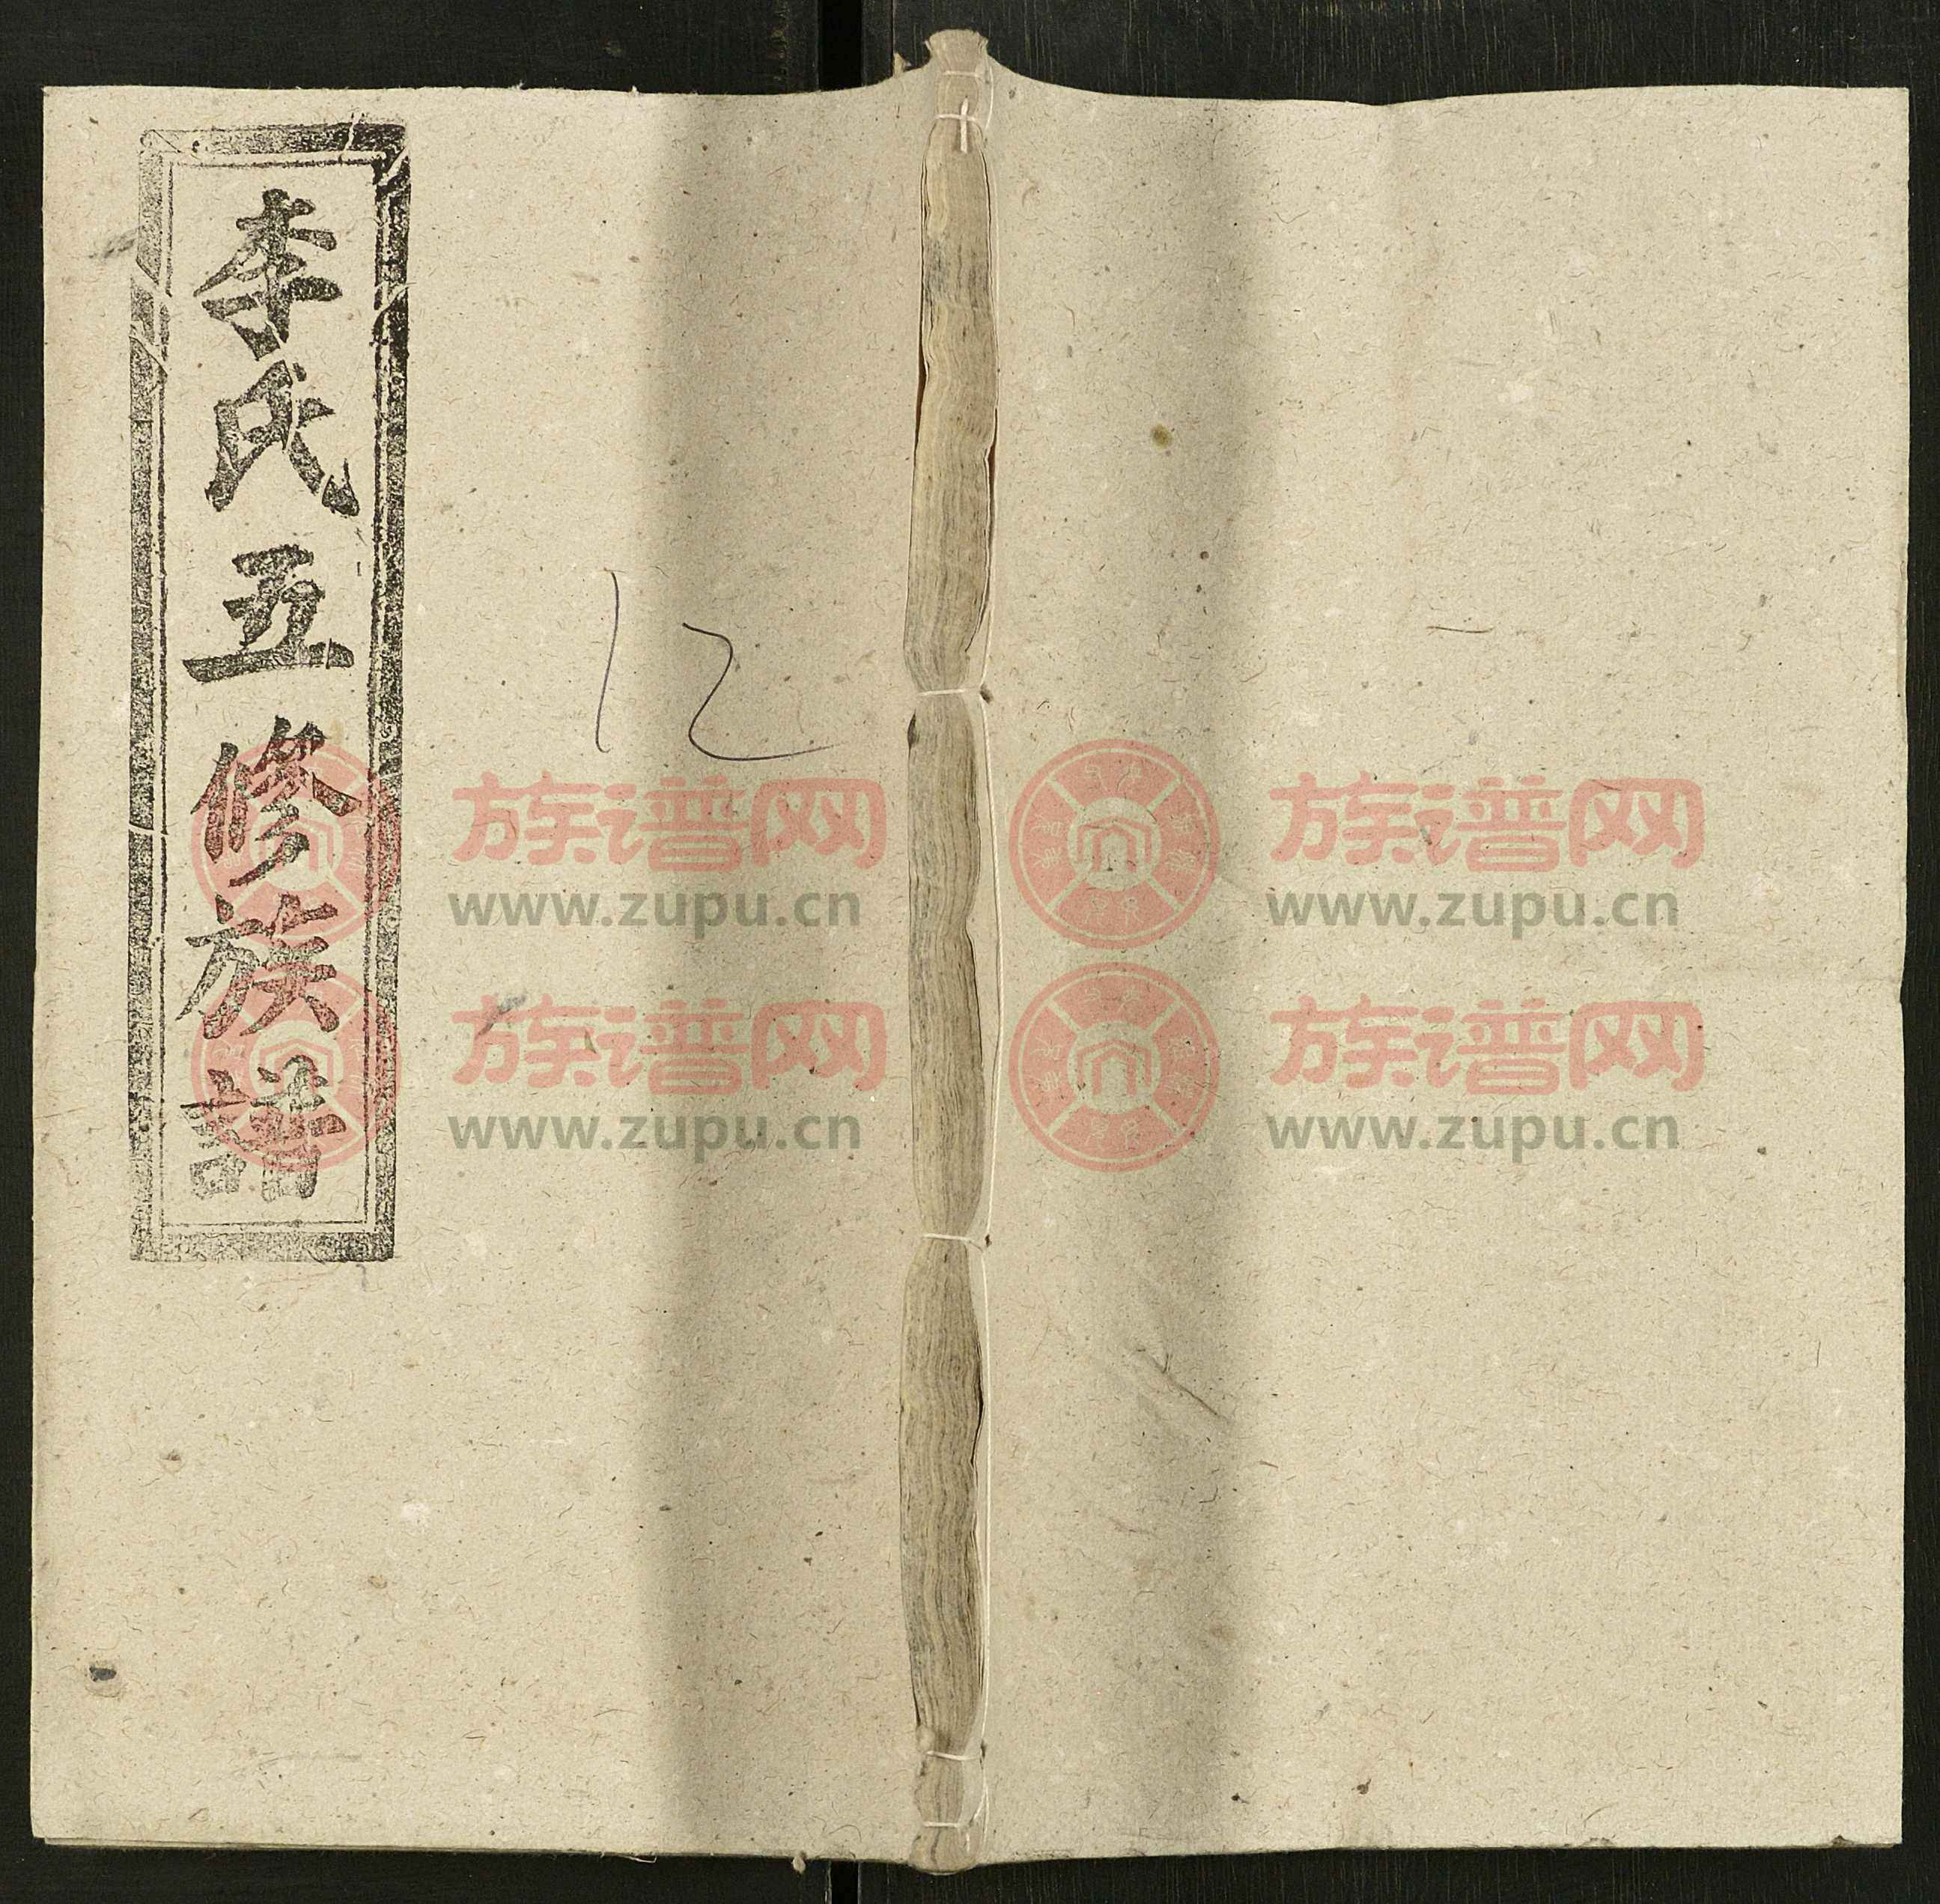 李氏五修族譜
12
族谱网 族谱网
www.zupu.cn www.zupu.cn
族谱网 族谱网
www.zupu.cn www.zupu.cn